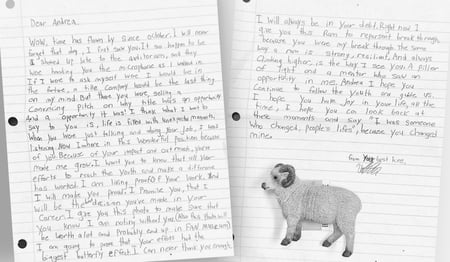 Dear Andrea,
Wow, time has flown by since October. I will never
forget that day, I first saw you. It so happen to be
I showed up late to the auditorium, and they
were handing you the microphone as I walked in
If I were to ask myself were I would be in
the future, a title company would be the last thing
on my mind. But there you were, selling a
convincing pitch on why title was an opportunity
And a opportunity it was! I think what I want to
say to you is, life is filled with
When you were just talking and doing your Job, I was
listening. Now I'm here in this wonderful position because
of you. Because of your impact and outreach, you've
made me grow. I want you to know that all your
efforts to reach the youth and make a difference
has worked. I am living proof of your work. And
I will make you proud. I promise you, that I
will be the decision you've made in your
career. I give you this photo to make sure that
you know I am nothing without you (Also this photo will
be worth alot and probably end up in
I am going to prove that your efforts had the
biggest butterfly effect. I can never thank you enough.
I will always be in your debt. Right now I
give you this Ram to represent break through,
because you were my break through the same
way a ram is strong, resilient, And always
climbing higher, is the way I see you. A pillar
of light and a mentor who saw an
opportunity in me, Andrea I hope you
continue to follow the youth and guide us.
I hope you have joy in your life, all the
time, I hope you can look back at
these moments and say "I was someone
who changed people's life", because you changed
mine.
from your best hire,